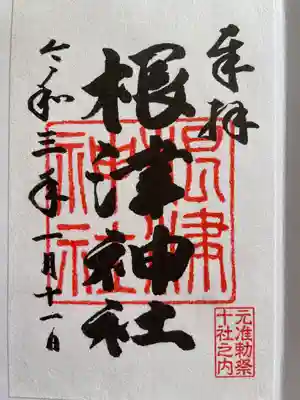 奉拝
根津神社
根津神社
令和三年一月十一日
元准勅祭
十社之内